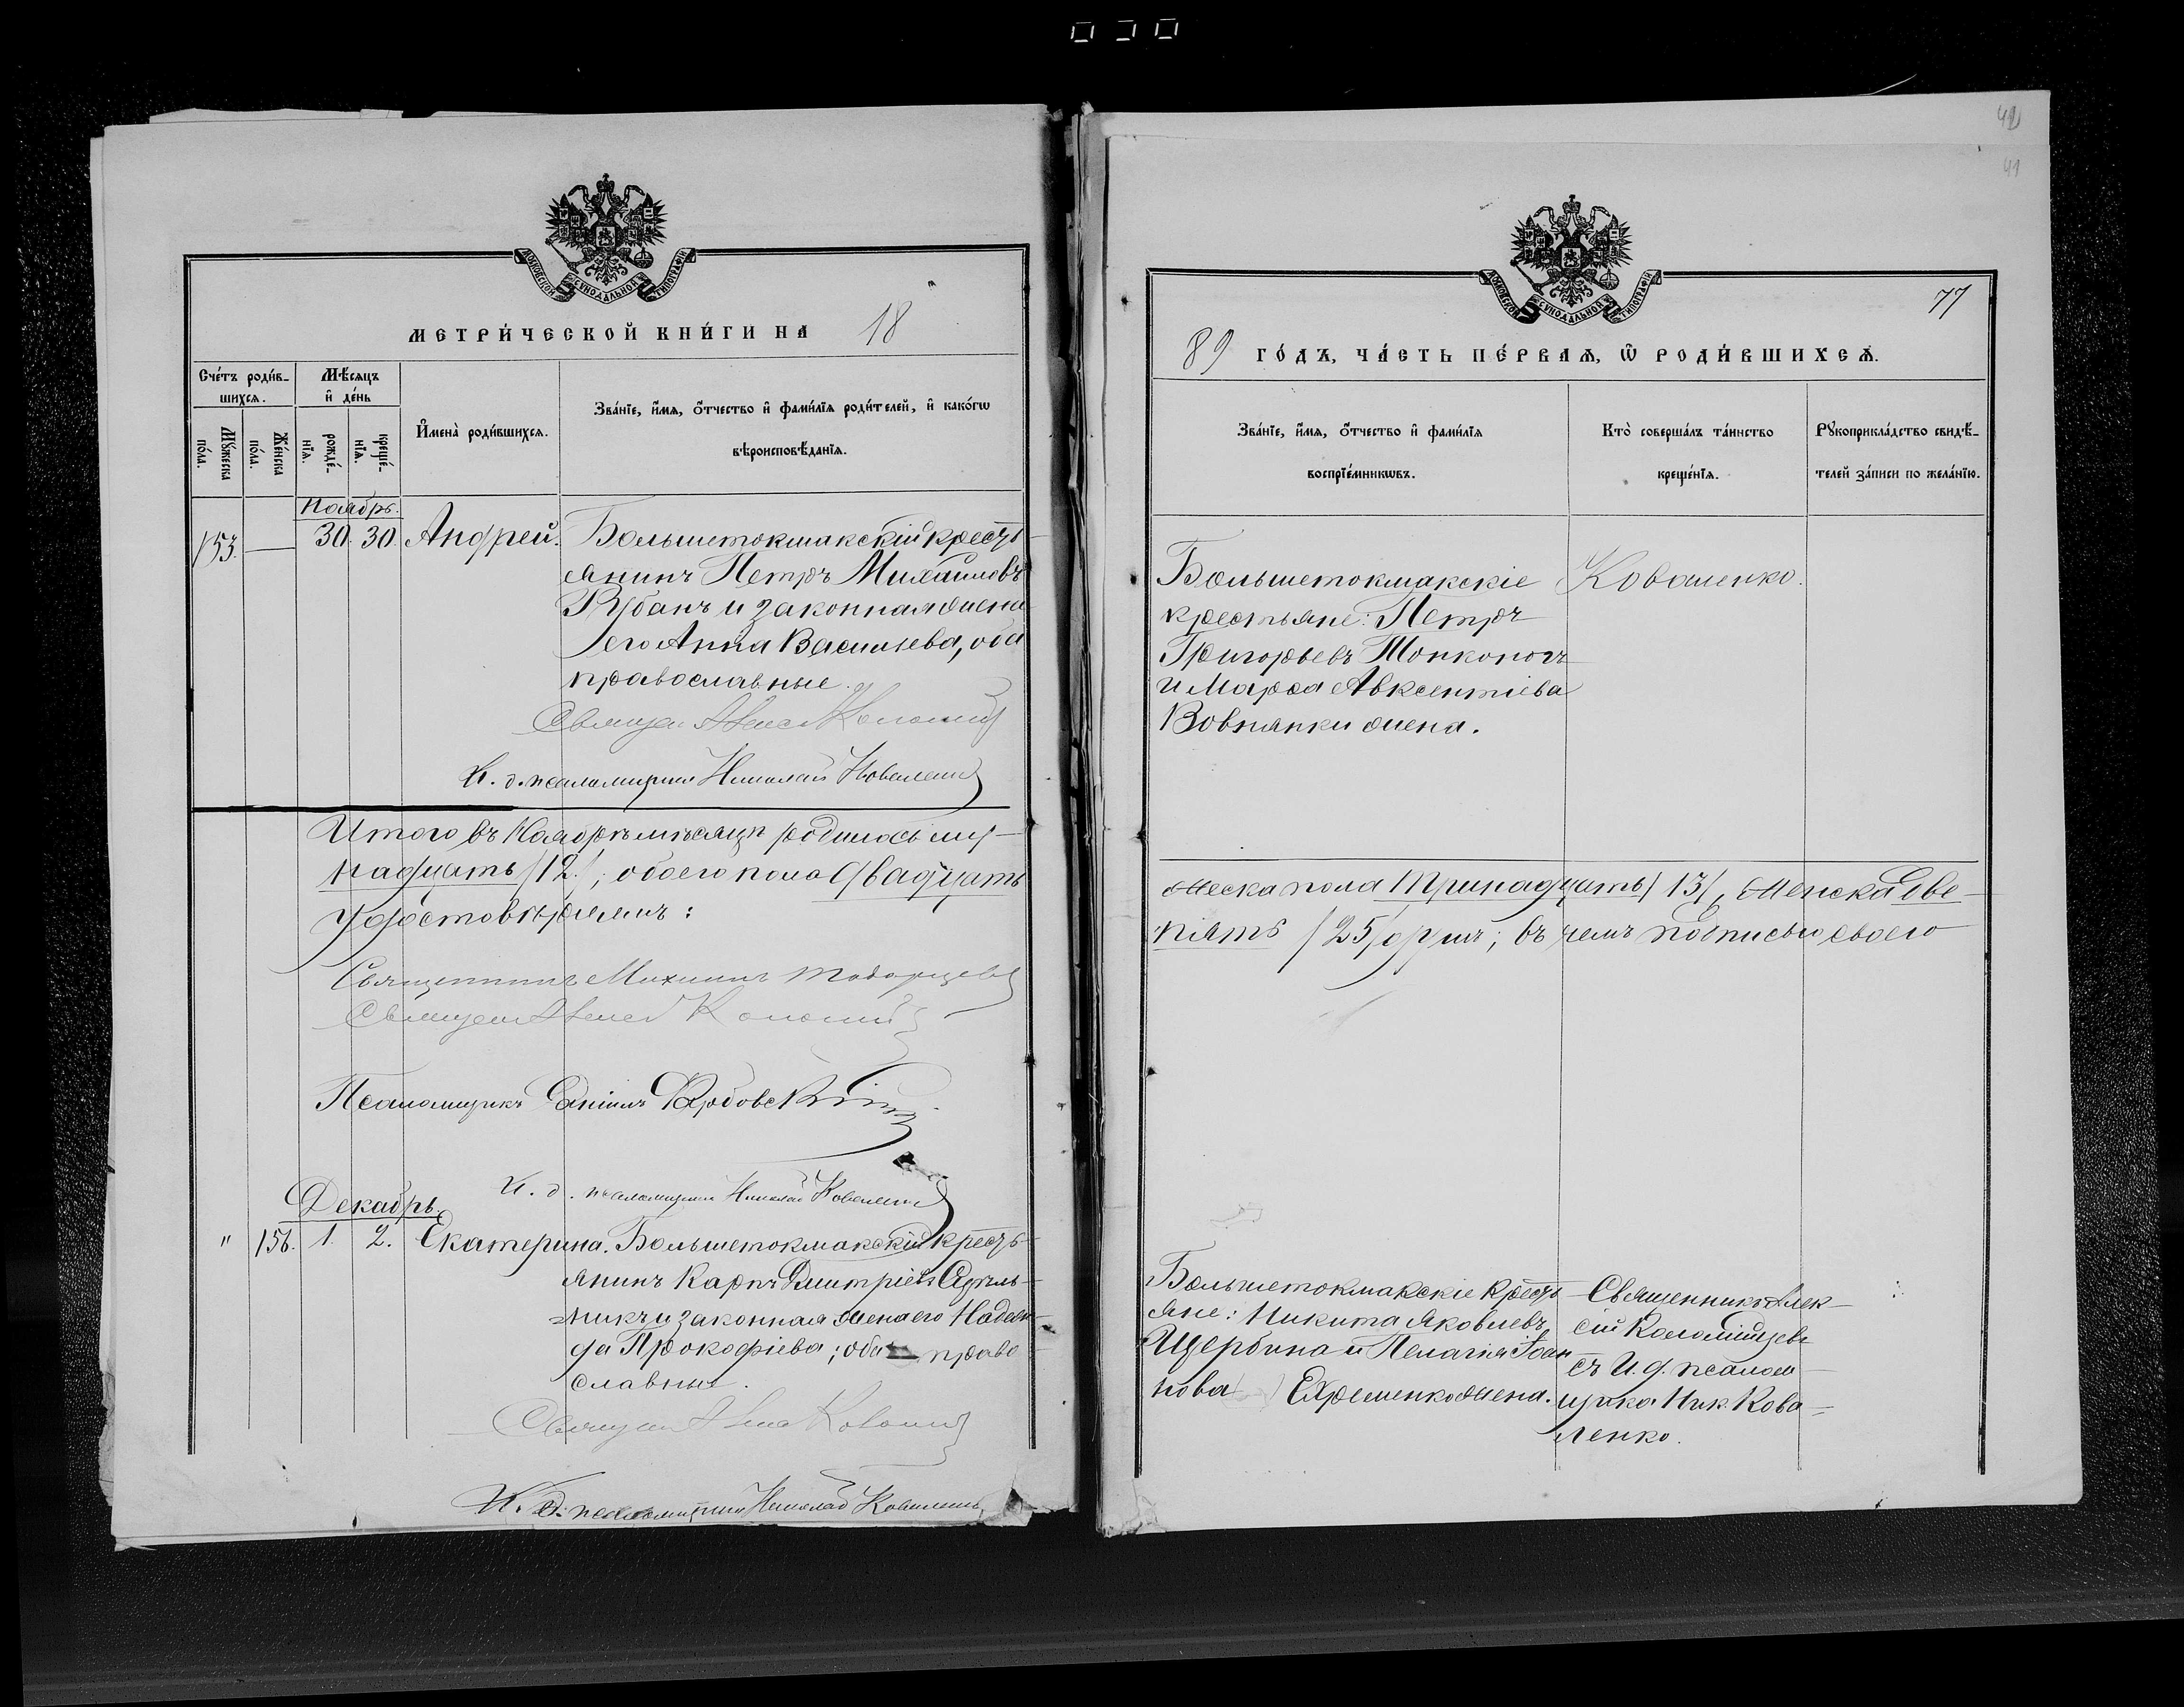 42
41
МОСКОВСКОЙ СУНОДАЛЬНОЙ ТИПОГРАФІИ
МЕТРИ́ЧЕСКОЙ КНИ́ГИ НА 18
Сче́тъ роди́в-
шихсѧ.
Мѣ́сѧцъ
и҆ де́нь
Мꙋ́жеска
по́ла.
Же́нска
по́ла.
рожде́-
нїѧ.
креще́-
нїѧ.
И҆мена̀ роди́вшихсѧ.
Зва́нїе, и҆́мѧ, ѻ҆́тчество и҆ фами́лїѧ роди́телей, и҆ како́гѡ
вѣроисповѣ́данїѧ.
Ноябрь.
153. — 30. 30. Андрей. Большетокмакскій кресть-
янинъ Петръ Михайловъ
Кубанъ и законная жена
его Анна Васильева, оба
православные.
И. д. псаломщика Николай Коваленко
Итого въ Ноябрѣ мѣсяцѣ родилось муж-
надцать /12/, обоего пола двадцать
удостовѣряемъ:
Священникъ Михаилъ
Псаломщикъ
И. д. псаломщика Николай Коваленко
Декабрь.
" 156. 1. 2. Екатерина. Большетокмакскій кресть-
янинъ Карпъ Дмитріевъ
никъ и законная жена его Надеж-
да Прокофіева; оба право-
славные.
И. д. псаломщика Николай Коваленко
МОСКОВСКОЙ СУНОДАЛЬНОЙ ТИПОГРАФІИ
77
89 ГО́ДЪ, ЧА́СТЬ ПЕ́РВАѦ, Ѡ҆ РОДИ́ВШИХСѦ.
Зва́нїе, и҆́мѧ, ѻ҆́тчество и҆ фами́лїѧ
воспрїе́мникѡвъ.
Кто̀ соверша́лъ та́инство
креще́нїѧ.
Рꙋкоприкла́дство свидѣ́-
телей за́писи по жела́нїю.
Большетокмакскіе Коваленко.
крестьяне: Петръ
Григорьевъ Тонконогъ
и Марѳа Авксентіева
Вовнянки жена.
жеска пола тринадцать /13/, женска две-
пять /25/ душъ; въ чемъ подписью своею
Большетокмакскіе кресть-
яне: Никита Яковлевъ
Щербина и Пелагія Іоан-
нова Ефременко жена.
Священникъ Алек-
сій Коломійцевъ
съ И. д. псалом-
щика Ник. Кова-
ленко.